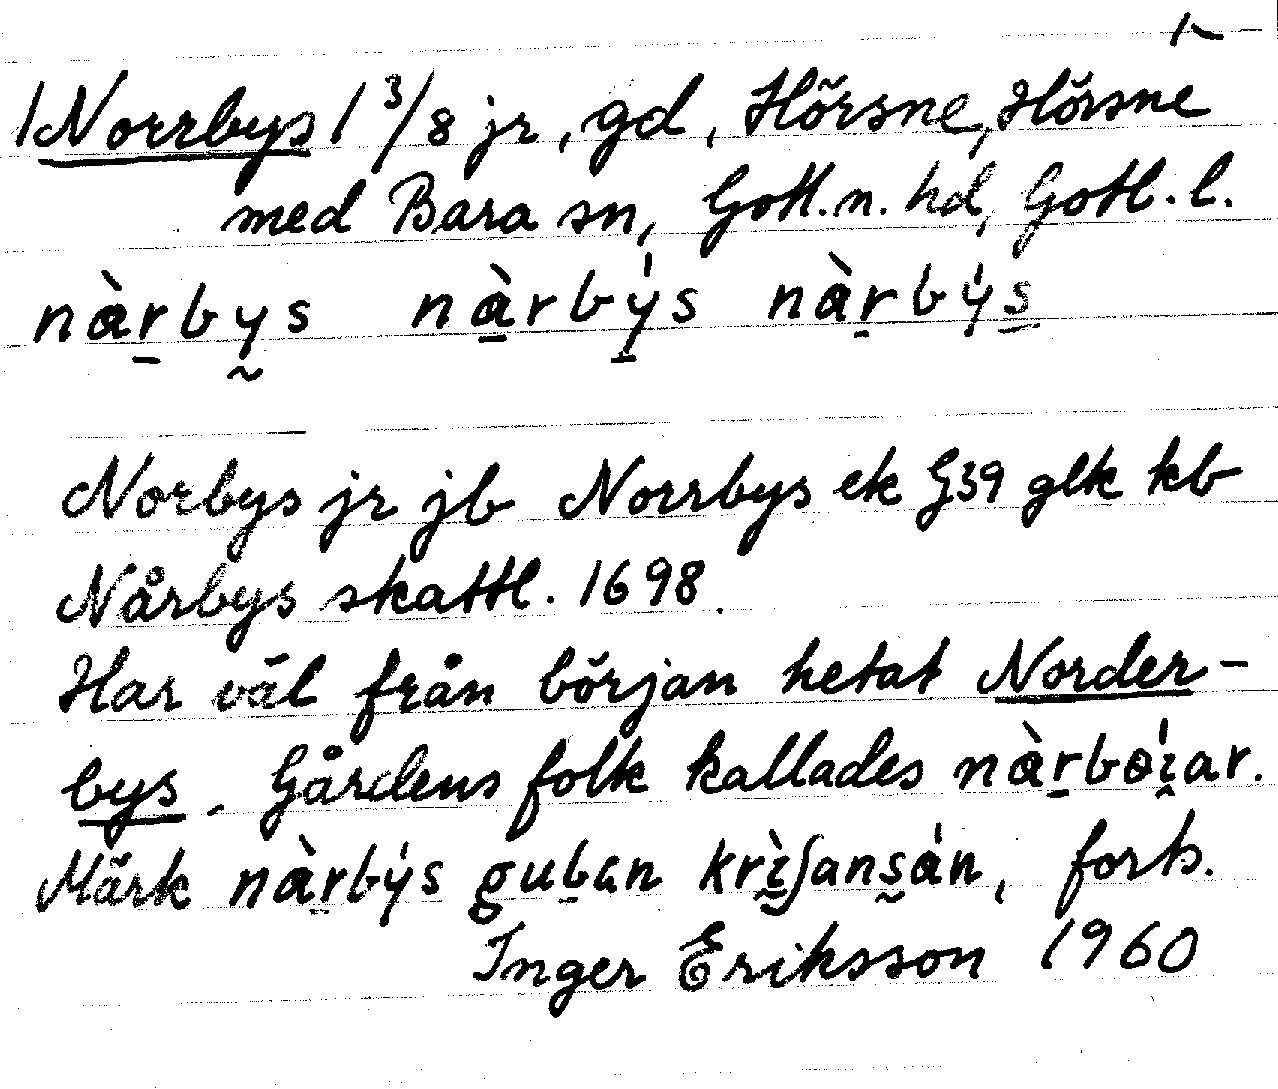 1~
/Norrbys/ 3/8 jr, gd, Hörsne, Hörsne
med Bara sn, Gotl. n. hd, Gotl. l.
nàrbys nàrbýs nàrbýs
Norbys jr jb Norrbys ek G39 glk kb
Nårbys skattl. 1698.
Har väl från början hetat Norder-
bys. Gårdens folk kallades nàrbɵíar.
Märk nàrbýs guban krìʃansán, forts.
Inger Eriksson 1960